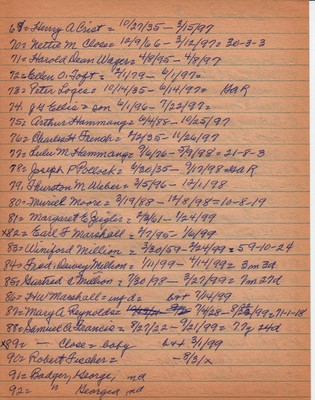 68= Henry A Crist = 10/27/35 - 3/15/97
70= Nettie M. Close= 12/9/66 - 3/12/97= 30-3-3
71= Harold Dean Wager= 4/8/95 - 4/8/97
72= Ellen O. = 2/1/79 - 6/1/97=
73= Peter Logee= 10/14/35 - 6/14/97= G.A.R
74. Ellis = son 6/1/96 - 7/22/97=
75= Arthur Hammang= 6/4/88 - 10/25/97
76= Charles H. French= 4/2/35 - 11/26/97
77= Lulu M. Hammang= 9/6/76 - 5/9/98= 21-8-3
78= Joseph F. Pollock= 6/30/25 - 9/17/98 G.A.R
79= Thurston M. Weber= 3/5/96 - 12/1/98
80= Muriel Moore= 3/19/88 - 12/8/98= 10-8-19
81= Margaret E. Zeigler= 2/3/61 - 1/24/99
X82= Earl F. Marshall= 4/7/95 - 1/6/99
83= Winiford Million= 3/30/59 - 2/24/99= 59-10-24
84= Fred. Dewey Million= 1/11/99 - 4/14/99= 3m 3d
85= Million= 7/30/98 - 3/27/99= 7m 27d
86= Marshall= inf-d= b+ 7/14/99
87= Mary A. Reynolds= 7/4/28 - 8/22/99= 71-1-18
88= Samuel A. = 8/27/22 - 9/21/99= 77y 24d
X89= - Close= baby b++ 3/1/99
90= Robert Fischer= - 8/3/X
91= Badger, George, md
92= " Georgea md